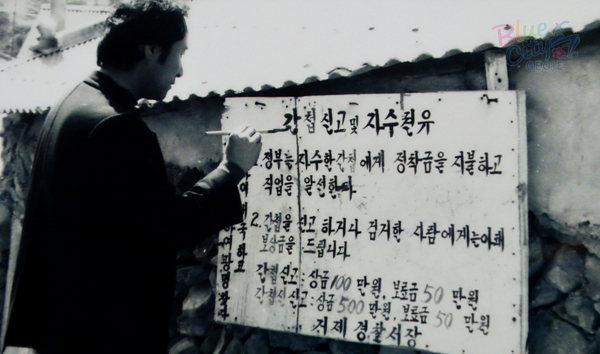 Blue City
간첩 신고 및 자수권유
정부는 자수한 간첩에게 정착금을 지불하고
직업을 알선한다.
2. 간첩을 신고 하거나 검거한 사람에게는 아래
보상금을 드립니다
간첩 신고 : 상금 100 만원, 보로금 50 만원
간첩선 신고 : 상금 500 만원, 보로금 50 만원
거제 경찰서장
하여 광명찾자